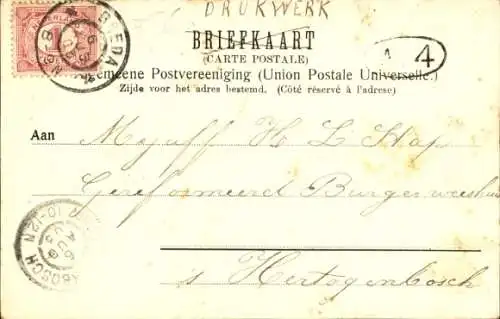 DRUKWERK
BRIEFKAART
(CARTE POSTALE)
4
Algemeene Postvereeniging (Union Postale Universelle.)
Zijde voor het adres bestemd. (Côté réservé à l'adresse)
BREDA
Aan Mejuff H L Stap
Gereformeerd Burgerweeshuis
10-12N
AUG
BOSCH
s Hertogenbosch